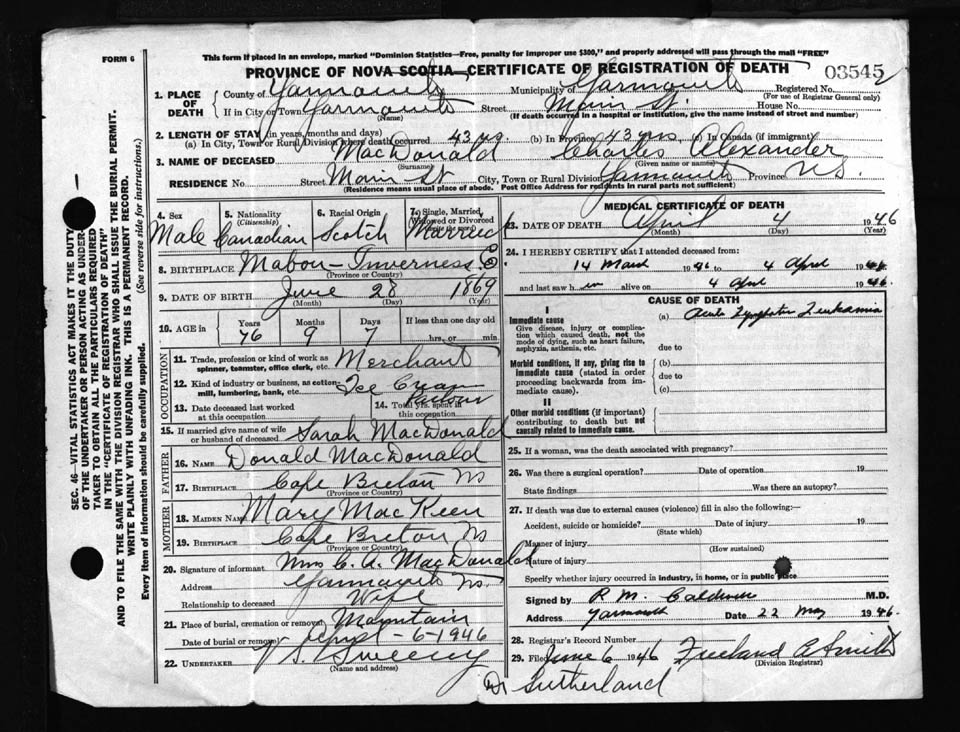 FORM 6
This form if placed in an envelope, marked "Dominion Statistics—Free, penalty for improper use $300," and properly addressed will pass through the mail "FREE"
PROVINCE OF NOVA SCOTIA—CERTIFICATE OF REGISTRATION OF DEATH
03545
1. PLACE OF DEATH
County of Yarmouth Municipality of Yarmouth Registered No.
(For use of Registrar General only)
If in City or Town Yarmouth Street Main St. House No.
(Name) (If death occurred in a hospital or institution, give the name instead of street and number)
2. LENGTH OF STAY (in years, months and days)
(a) In City, Town or Rural Division where death occurred 43 yrs. (b) In Province 43 yrs (c) In Canada (if immigrant)
3. NAME OF DECEASED MacDonald Charles Alexander
(Surname) (Given name or names)
RESIDENCE No. Street Main St City, Town or Rural Division Yarmouth Province NS.
(Residence means usual place of abode. Post Office Address for residents in rural parts not sufficient)
4. Sex Male
5. Nationality (Citizenship) Canadian
6. Racial Origin Scotch
7. Single, Married, Widowed or Divorced (write the word) Married
8. BIRTHPLACE Mabou - Inverness Co
(Province or Country)
9. DATE OF BIRTH June 28 1869
(Month) (Day) (Year)
10. AGE in Years Months Days If less than one day old
76 9 7 hrs. or min.
OCCUPATION
11. Trade, profession or kind of work as spinner, teamster, office clerk, etc. Merchant
12. Kind of industry or business, as cotton-mill, lumbering, bank, etc. Ice Cream Parlour
13. Date deceased last worked at this occupation
14. Total yrs. spent in this occupation
15. If married give name of wife or husband of deceased Sarah MacDonald
FATHER
16. NAME Donald MacDonald
17. BIRTHPLACE Cape Breton NS
(Province or Country)
MOTHER
18. MAIDEN NAME Mary MacKeen
19. BIRTHPLACE Cape Breton NS
(Province or Country)
20. Signature of informant Mrs C. A. MacDonald
Address Yarmouth NS.
Relationship to deceased Wife
21. Place of burial, cremation or removal Mountain
Date of burial or removal April - 6 - 1946
22. UNDERTAKER V S. Sweeny
(Name and address)
MEDICAL CERTIFICATE OF DEATH
23. DATE OF DEATH April 4 1946
(Month) (Day) (Year)
24. I HEREBY CERTIFY that I attended deceased from:
14 March 1946 to 4 April 1946
and last saw him alive on 4 April 1946.
CAUSE OF DEATH
I
Immediate cause (a) Acute Lymphatic Leukaemia
Give disease, injury or complication which caused death, not the mode of dying, such as heart failure, asphyxia, asthenia, etc.
due to
Morbid conditions, if any, giving rise to immediate cause (stated in order proceeding backwards from immediate cause).
(b)
due to
(c)
II
Other morbid conditions (if important) contributing to death but not causally related to immediate cause.
25. If a woman, was the death associated with pregnancy?
26. Was there a surgical operation? Date of operation 19
State findings Was there an autopsy?
27. If death was due to external causes (violence) fill in also the following:—
Accident, suicide or homicide? Date of injury 19
(State which)
Manner of injury
(How sustained)
Nature of injury
Specify whether injury occurred in industry, in home, or in public place
Signed by R M. Caldwell M.D.
Address Yarmouth Date 22 May 1946.
28. Registrar's Record Number
29. Filed June 6 1946 Freeland A Smith
(Division Registrar)
Dr Sutherland
SEC. 46—VITAL STATISTICS ACT MAKES IT THE DUTY
OF THE UNDERTAKER OR PERSON ACTING AS UNDER-
TAKER TO OBTAIN ALL THE PARTICULARS REQUIRED
IN THE "CERTIFICATE OF REGISTRATION OF DEATH"
AND TO FILE THE SAME WITH THE DIVISION REGISTRAR WHO SHALL ISSUE THE BURIAL PERMIT.
WRITE PLAINLY WITH UNFADING INK. THIS IS A PERMANENT RECORD.
Every item of information should be carefully supplied. (See reverse side for instructions.)